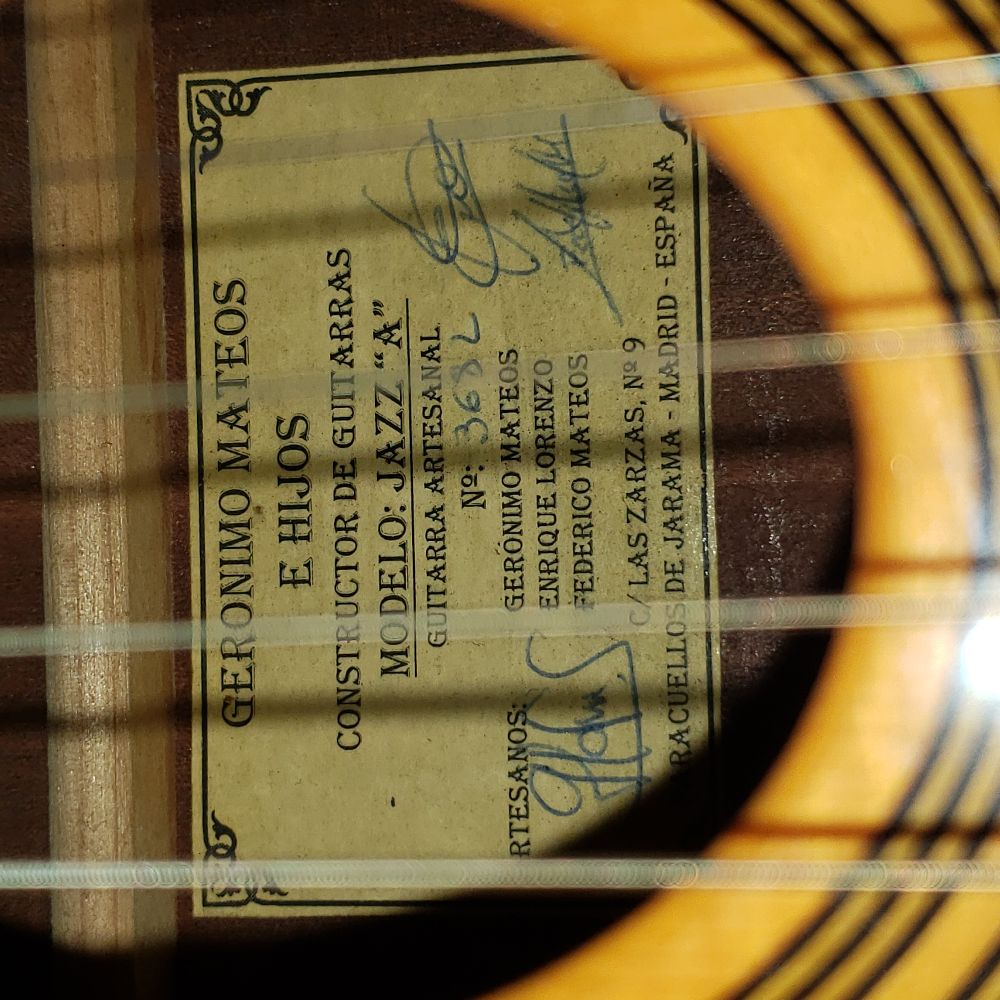 GERONIMO MATEOS
E HIJOS
CONSTRUCTOR DE GUITARRAS
MODELO: JAZZ “A”
GUITARRA ARTESANAL
Nº:
RTESANOS: GERÓNIMO MATEOS
ENRIQUE LORENZO
FEDERICO MATEOS
C/ LAS ZARZAS, Nº 9
ARACUELLOS DE JARAMA - MADRID - ESPAÑA